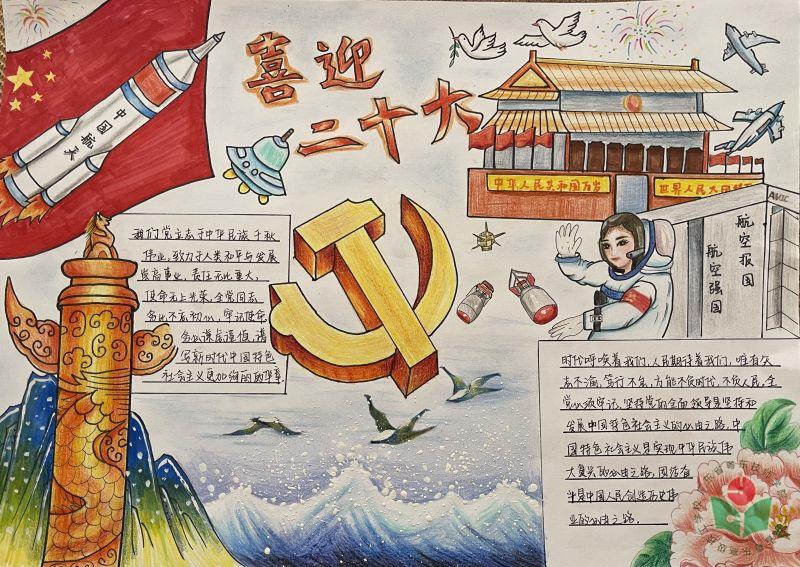 喜迎
二十大
中国航天
中华人民共和国万岁
世界人民大团结万
AVIC
航空报国
航空强国
我们党立志于中华民族千秋
伟业,致力于人类和平与发展
崇高事业,责任无比重大,
使命无上光荣。全党同志
务必不忘初心,牢记使命
务必谦虚谨慎,谱
写新时代中国特色
社会主义更加绚丽的华章.
时代呼唤着我们,人民期待着我们,唯有矢
志不渝,笃行不怠,方能不负时代,不负人民,全
党必须牢记,坚持党的全面领导是坚持和
发展中国特色社会主义的必由之路,中
国特色社会主义是实现中华民族伟
大复兴的必由之路,团结奋
斗是中国人民创造历史伟
业的必由之路.